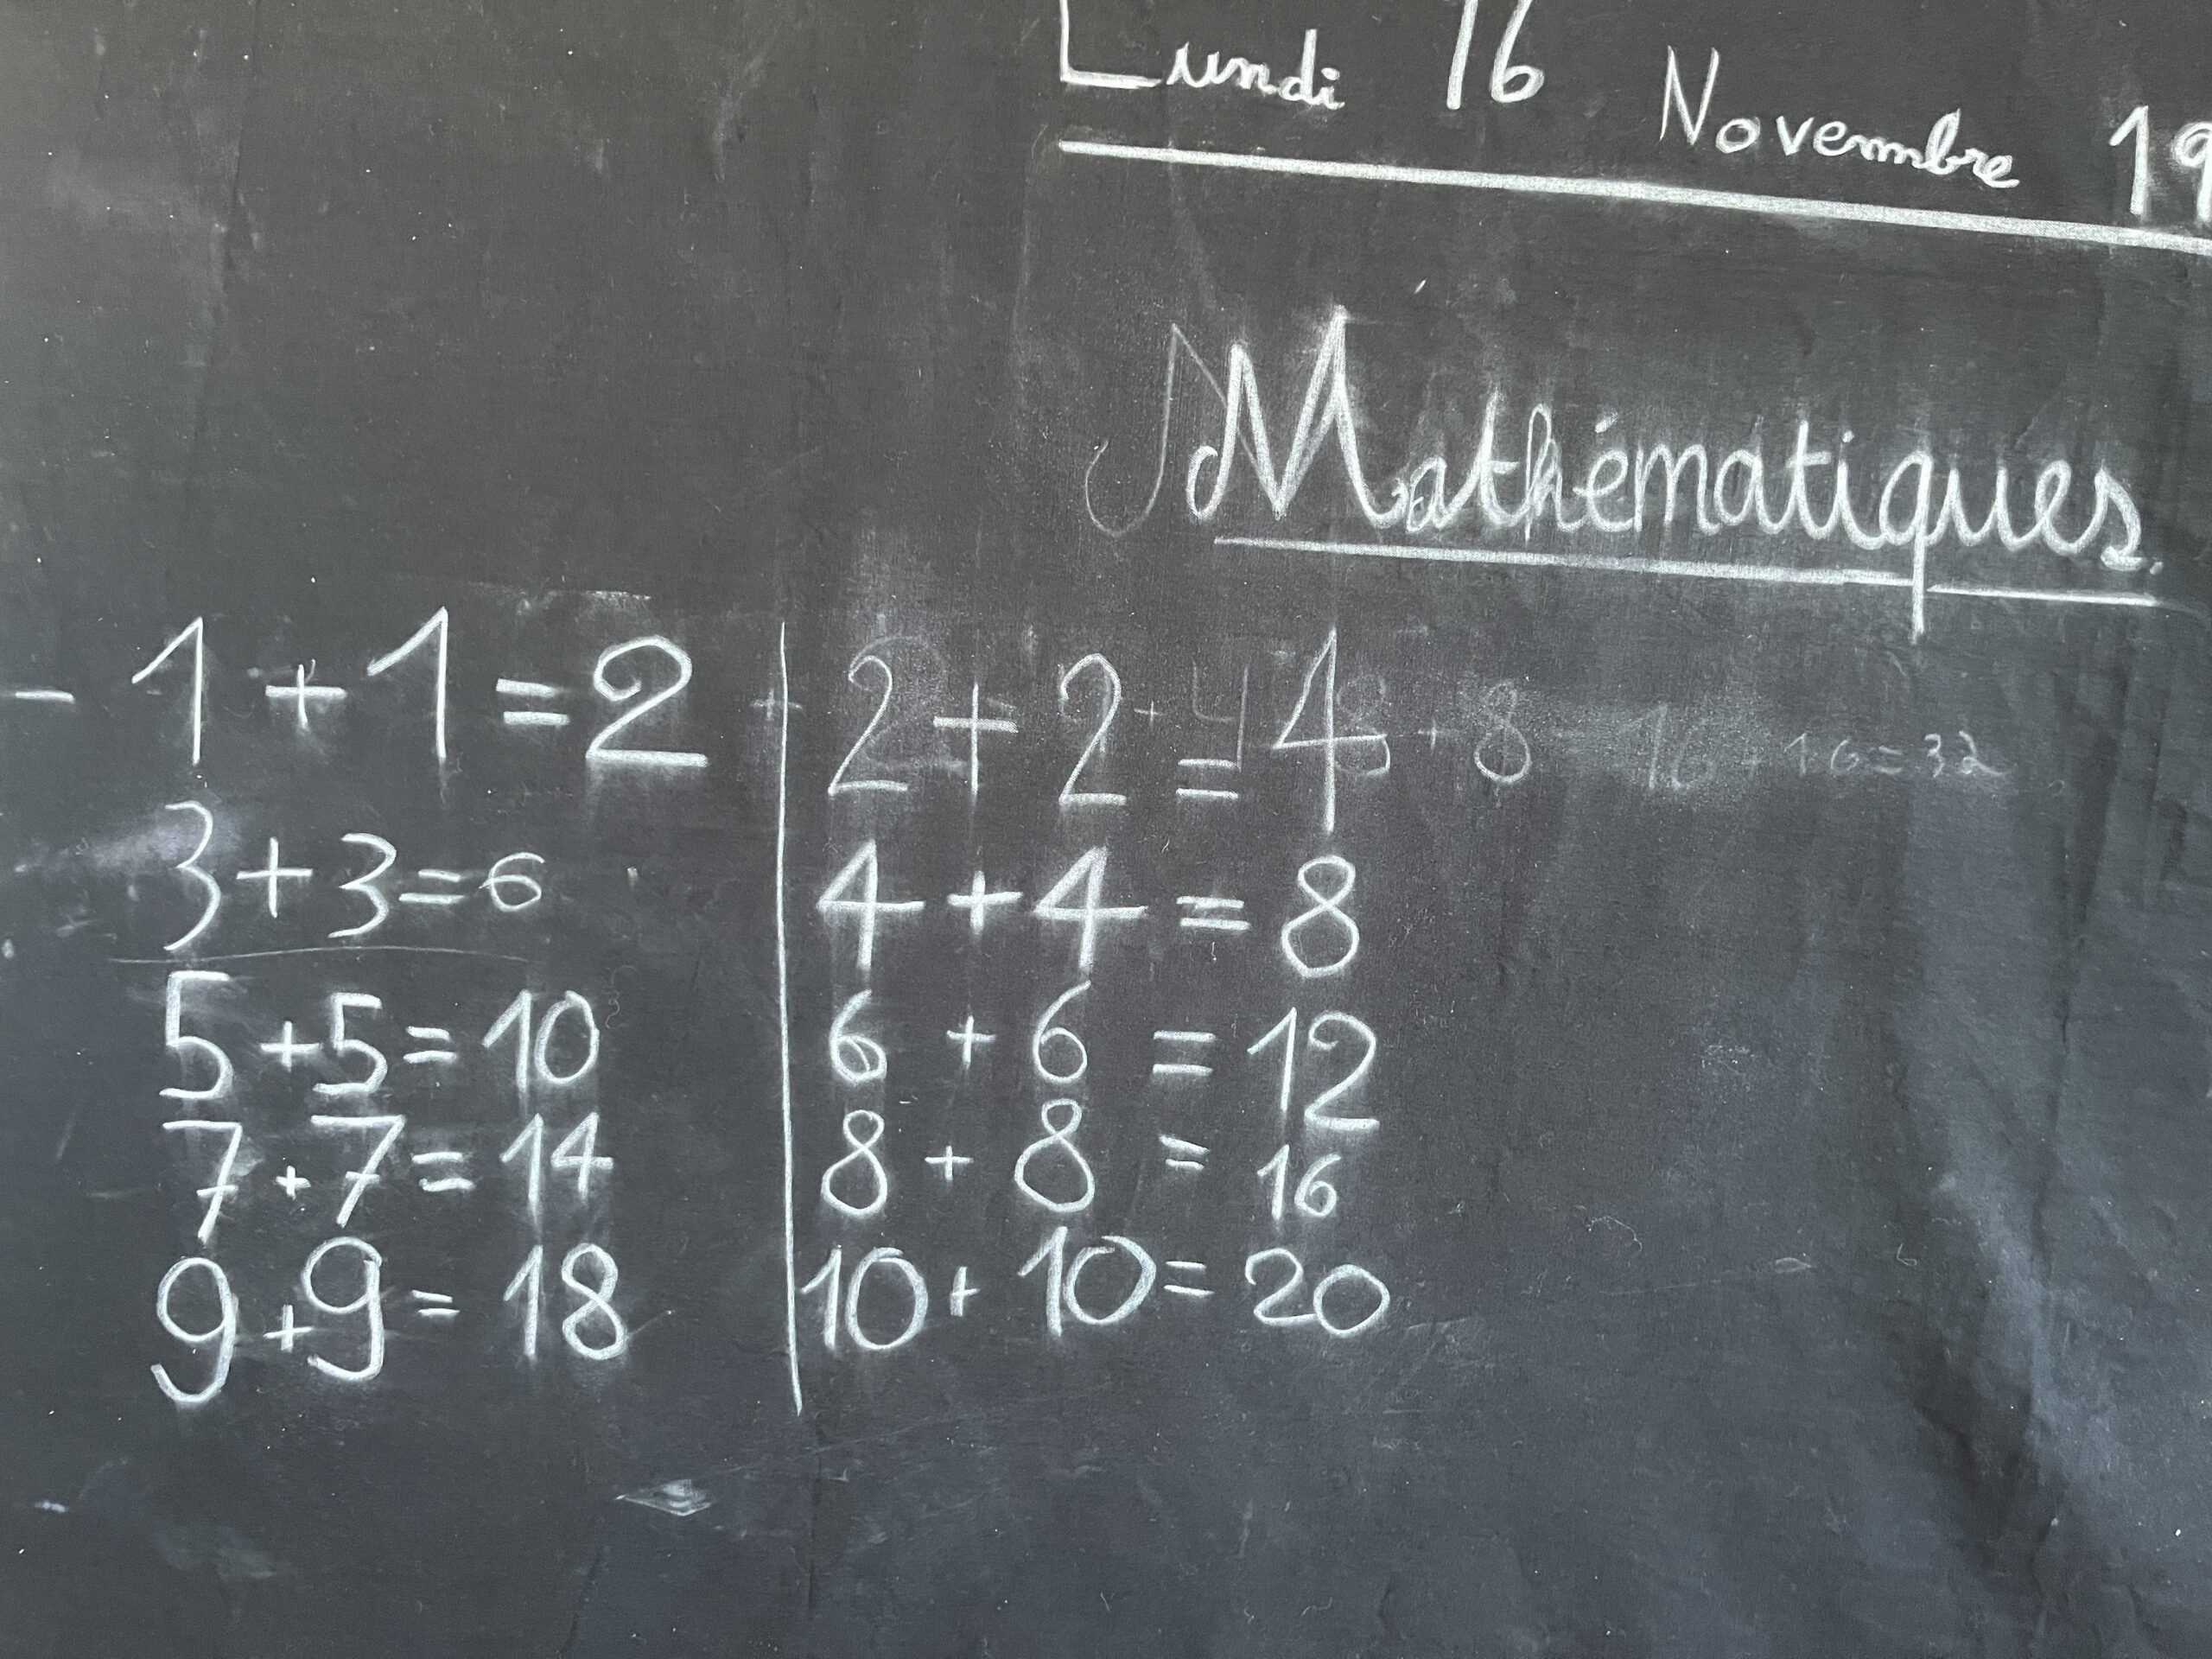 Lundi 16 Novembre 19
Mathématiques.
- 1 + 1 = 2
3 + 3 = 6
5 + 5 = 10
7 + 7 = 14
9 + 9 = 18
2 + 2 = 4
4 + 4 = 8
6 + 6 = 12
8 + 8 = 16
10 + 10 = 20
8 + 8 = 16 + 16 = 32